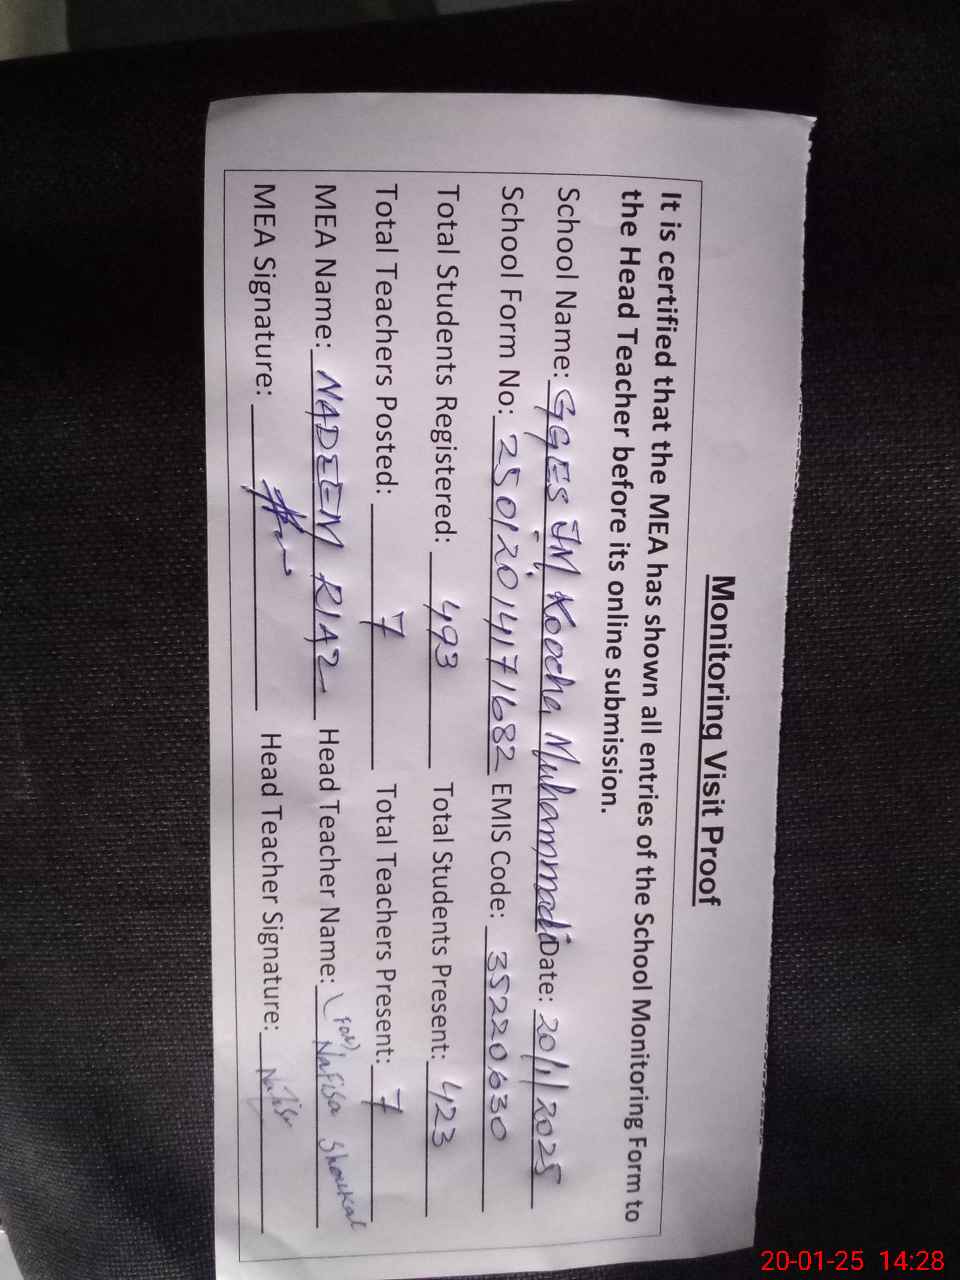 Monitoring Visit Proof
It is certified that the MEA has shown all entries of the School Monitoring Form to
the Head Teacher before its online submission.
School Name: GGES JM Koocha Muhammadi Date: 20/1/2025
School Form No: 250120141171682 EMIS Code: 35220630
Total Students Registered: 493 Total Students Present: 423
Total Teachers Posted: 7 Total Teachers Present: 7
MEA Name: NADEEM RIAZ Head Teacher Name: Nafisa Shoukat
MEA Signature: Head Teacher Signature:
20-01-25 14:28